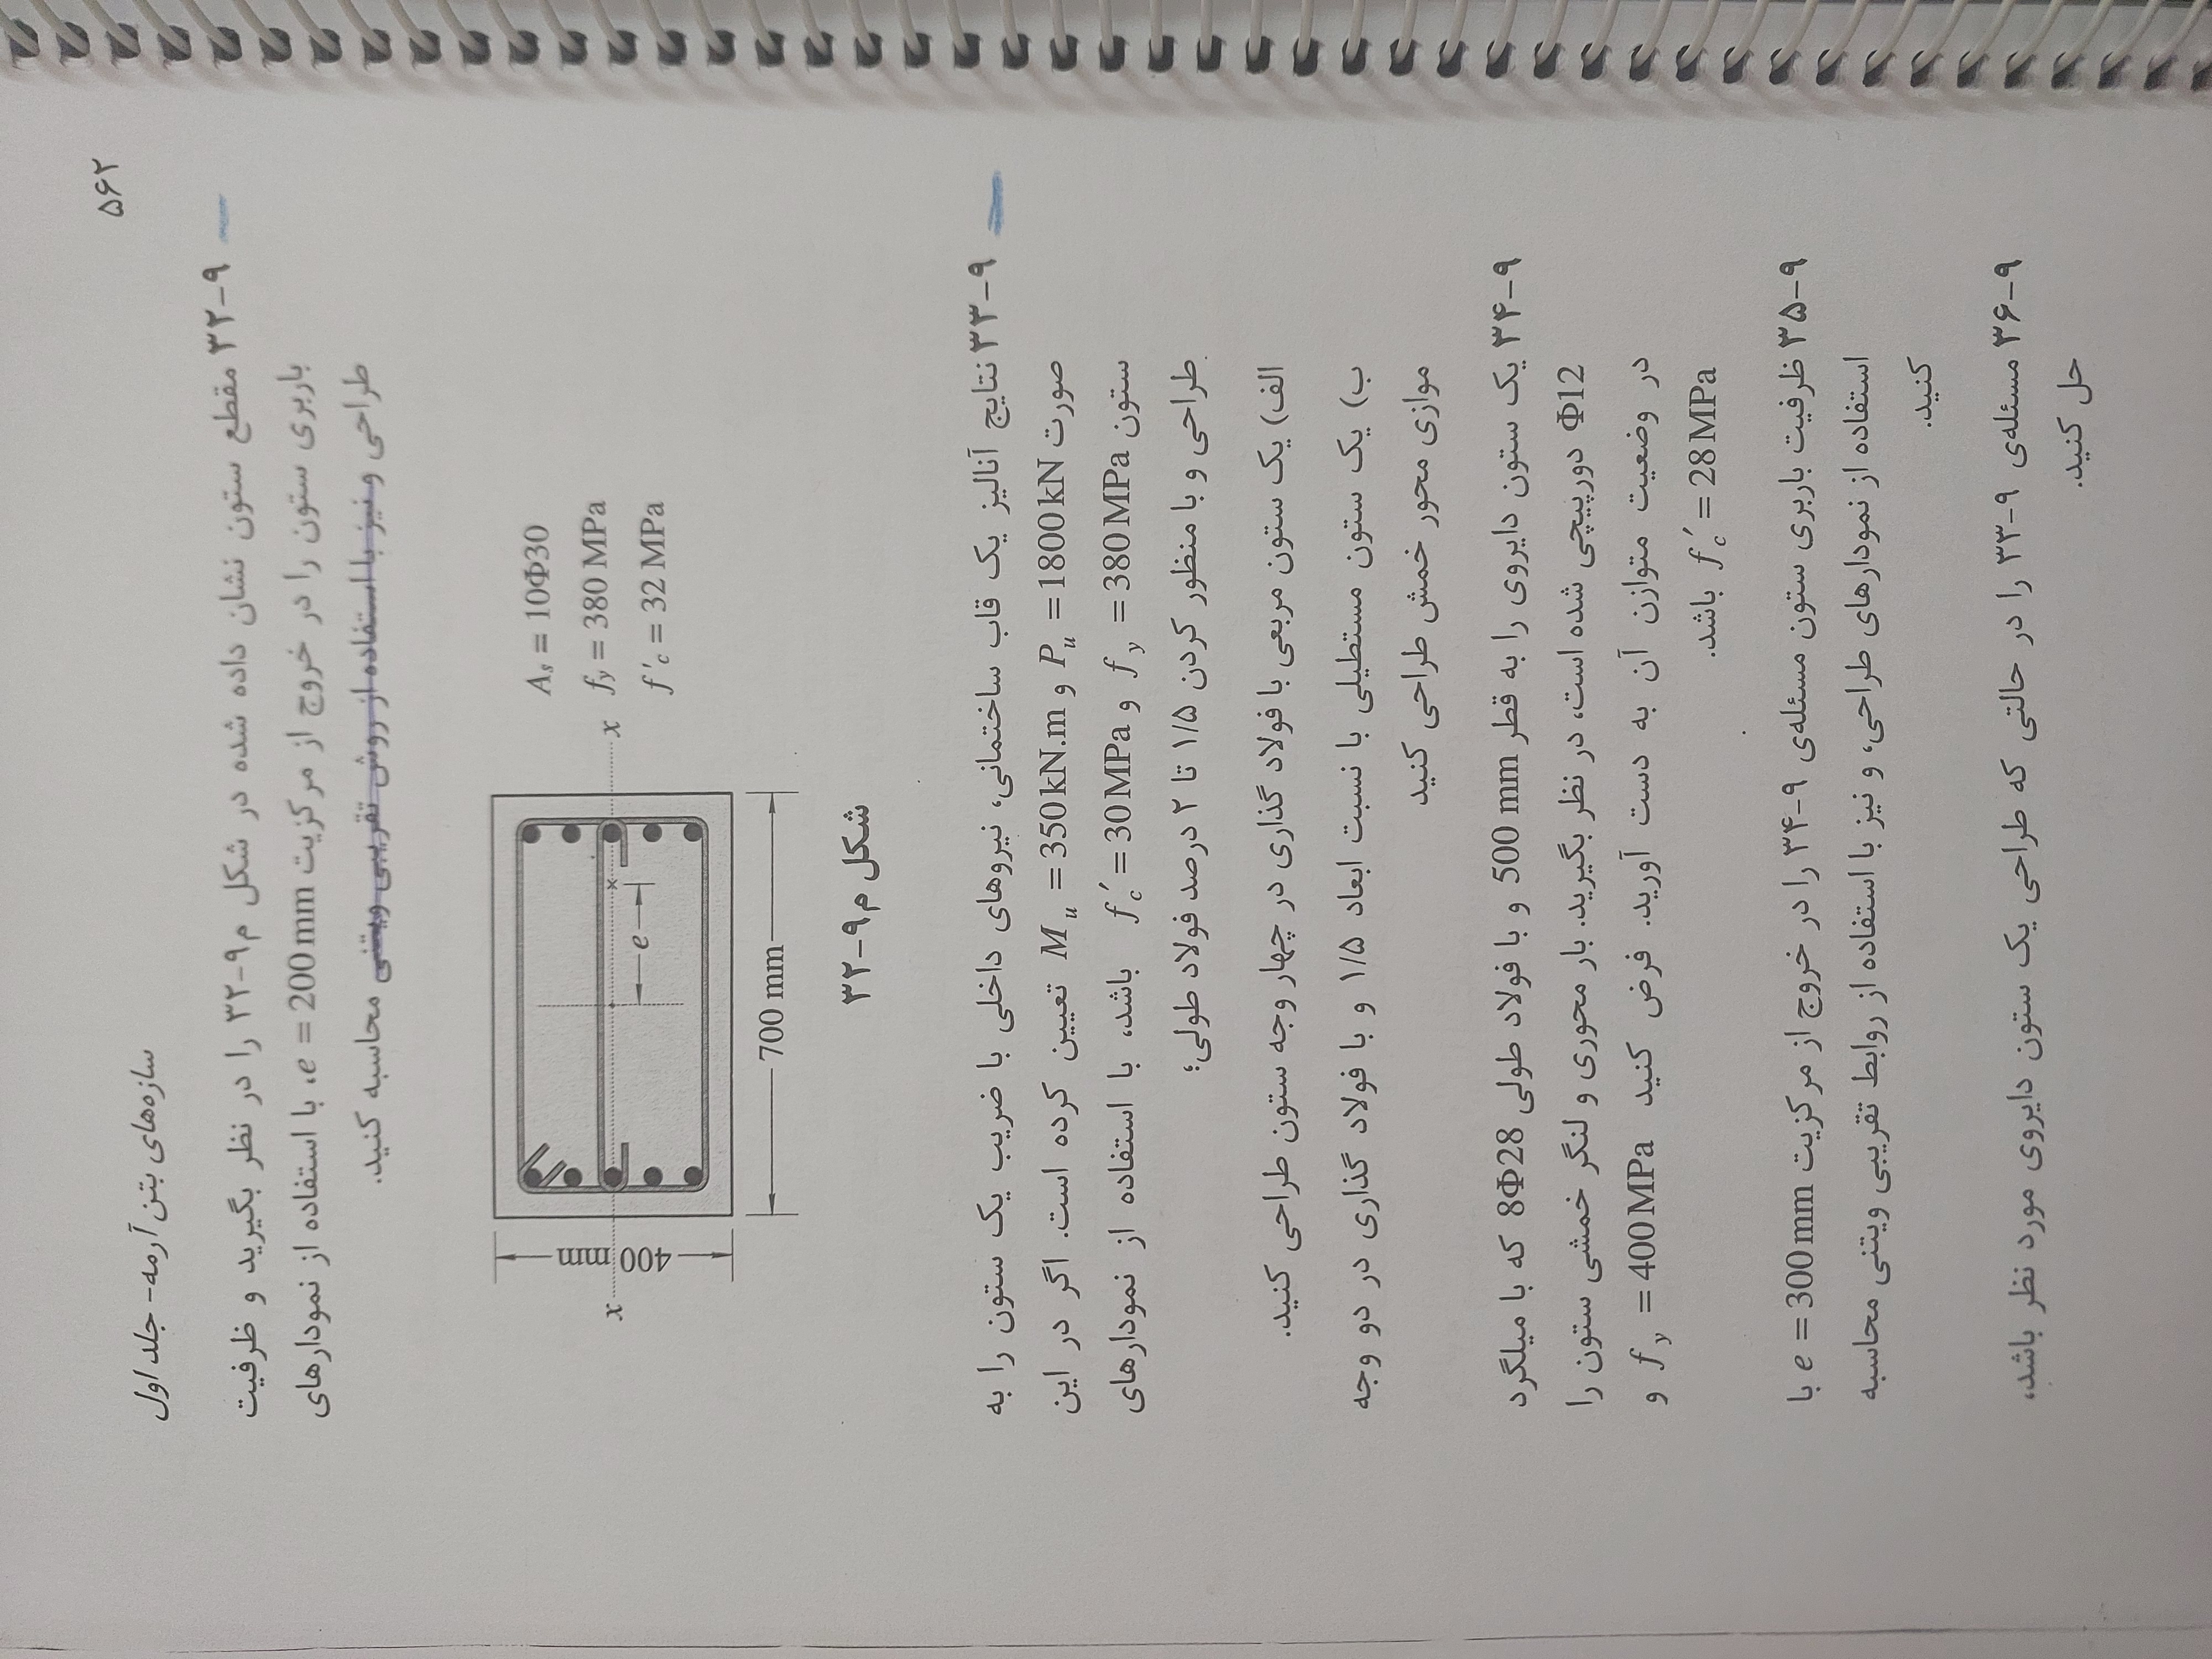 سازه‌های بتن آرمه- جلد اول
۵۶۲
۹-۳۲ مقطع ستون نشان داده شده در شکل م۹-۳۲ را در نظر بگیرید و ظرفیت
باربری ستون را در خروج از مرکزیت e = 200 mm، با استفاده از نمودارهای
طراحی و نیز با استفاده از روش تقریبی ویتنی محاسبه کنید.
A_s = 10Φ30
f_y = 380 MPa
f'_c = 32 MPa
x
x
e
400 mm
700 mm
شکل م۹-۳۲
۹-۳۳ نتایج آنالیز یک قاب ساختمانی، نیروهای داخلی با ضریب یک ستون را به
صورت P_u = 1800 kN و M_u = 350 kN.m تعیین کرده است. اگر در این
ستون f_y = 380 MPa و f_c' = 30 MPa باشد، با استفاده از نمودارهای
طراحی و با منظور کردن ۱/۵ تا ۲ درصد فولاد طولی؛
الف) یک ستون مربعی با فولاد گذاری در چهار وجه ستون طراحی کنید.
ب) یک ستون مستطیلی با نسبت ابعاد ۱/۵ و با فولاد گذاری در دو وجه
موازی محور خمش طراحی کنید
۹-۳۴ یک ستون دایروی را به قطر 500 mm و با فولاد طولی 8Φ28 که با میلگرد
Φ12 دورپیچی شده است، در نظر بگیرید. بار محوری و لنگر خمشی ستون را
در وضعیت متوازن آن به دست آورید. فرض کنید f_y = 400 MPa و
f_c' = 28 MPa باشد.
۹-۳۵ ظرفیت باربری ستون مسئله‌ی ۹-۳۴ را در خروج از مرکزیت e = 300 mm با
استفاده از نمودارهای طراحی، و نیز با استفاده از روابط تقریبی ویتنی محاسبه
کنید.
۹-۳۶ مسئله‌ی ۹-۳۳ را در حالتی که طراحی یک ستون دایروی مورد نظر باشد،
حل کنید.